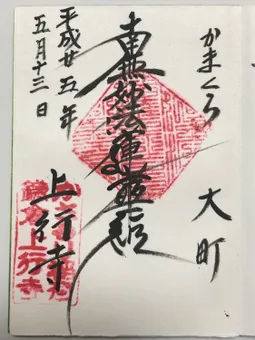 かまくら
大町
南無妙法蓮華経
平成廿五年
五月十三日
上行寺